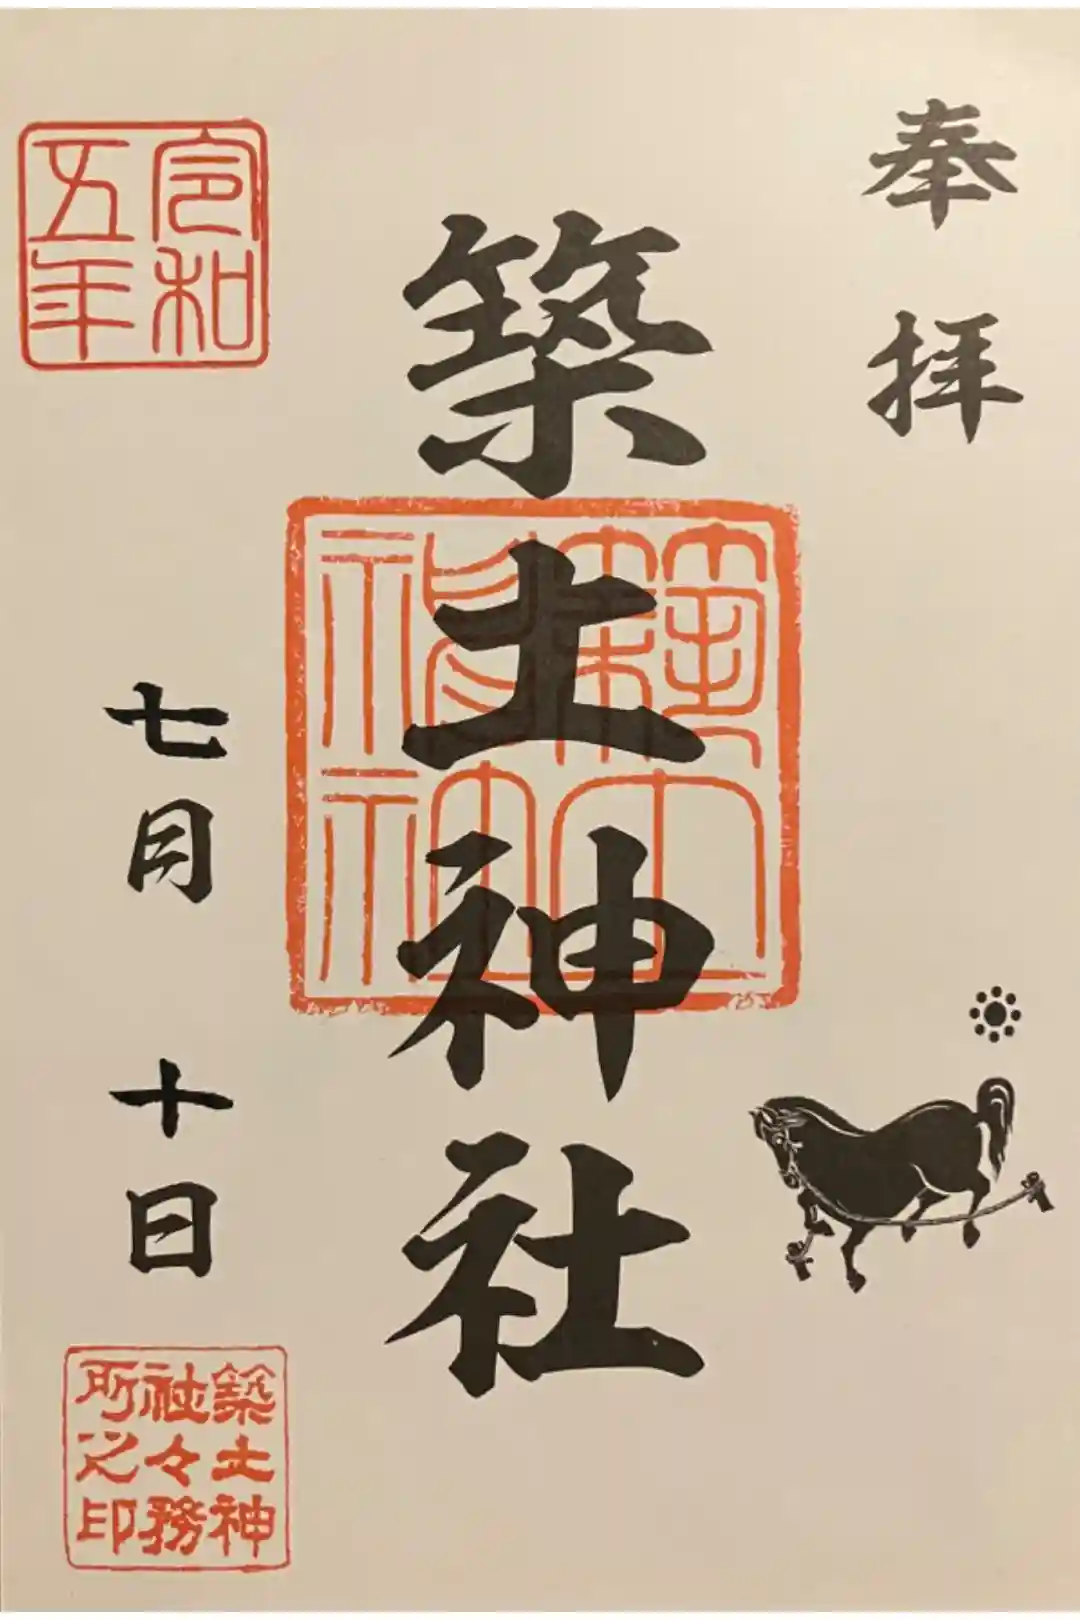 奉拝
築土神社
築土神社
令和
五年
七月十日
築土神
社々務
所之印